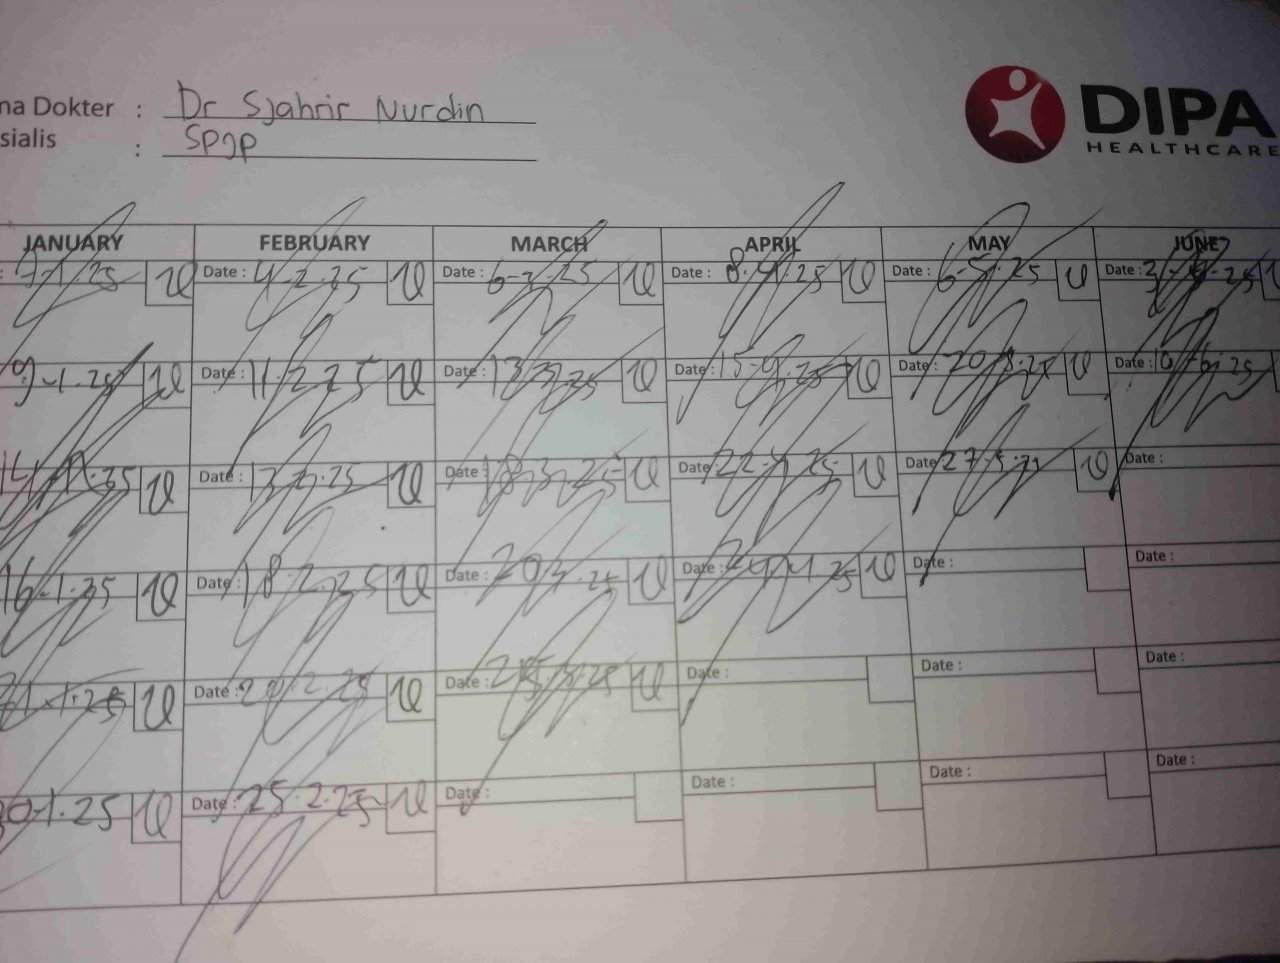 na Dokter : Dr Sjahrir Nurdin
sialis : SPJP
DIPA
HEALTHCARE
JANUARY FEBRUARY MARCH APRIL MAY JUNE
: 7-1.25 Date : 4-2.25 Date : 6-3.25 Date : 8.4.25 Date : 6-5.25 Date : 3
9-1.25 Date : 11.2.25 Date : 13.3.25 Date : 15-4.25 Date : 20.5.25 Date : 10.6.25
14.1.25 Date : 13.2.25 Date : 18.3.25 Date : 22.4.25 Date : 27.5.25 Date :
16-1.25 Date : 18.2.25 Date : 20.3.25 Date : 24.4.25 Date : Date :
21.1.25 Date : 20.2.25 Date : 25.3.25 Date : Date : Date :
30-1.25 Date : 25.2.25 Date : Date : Date : Date :